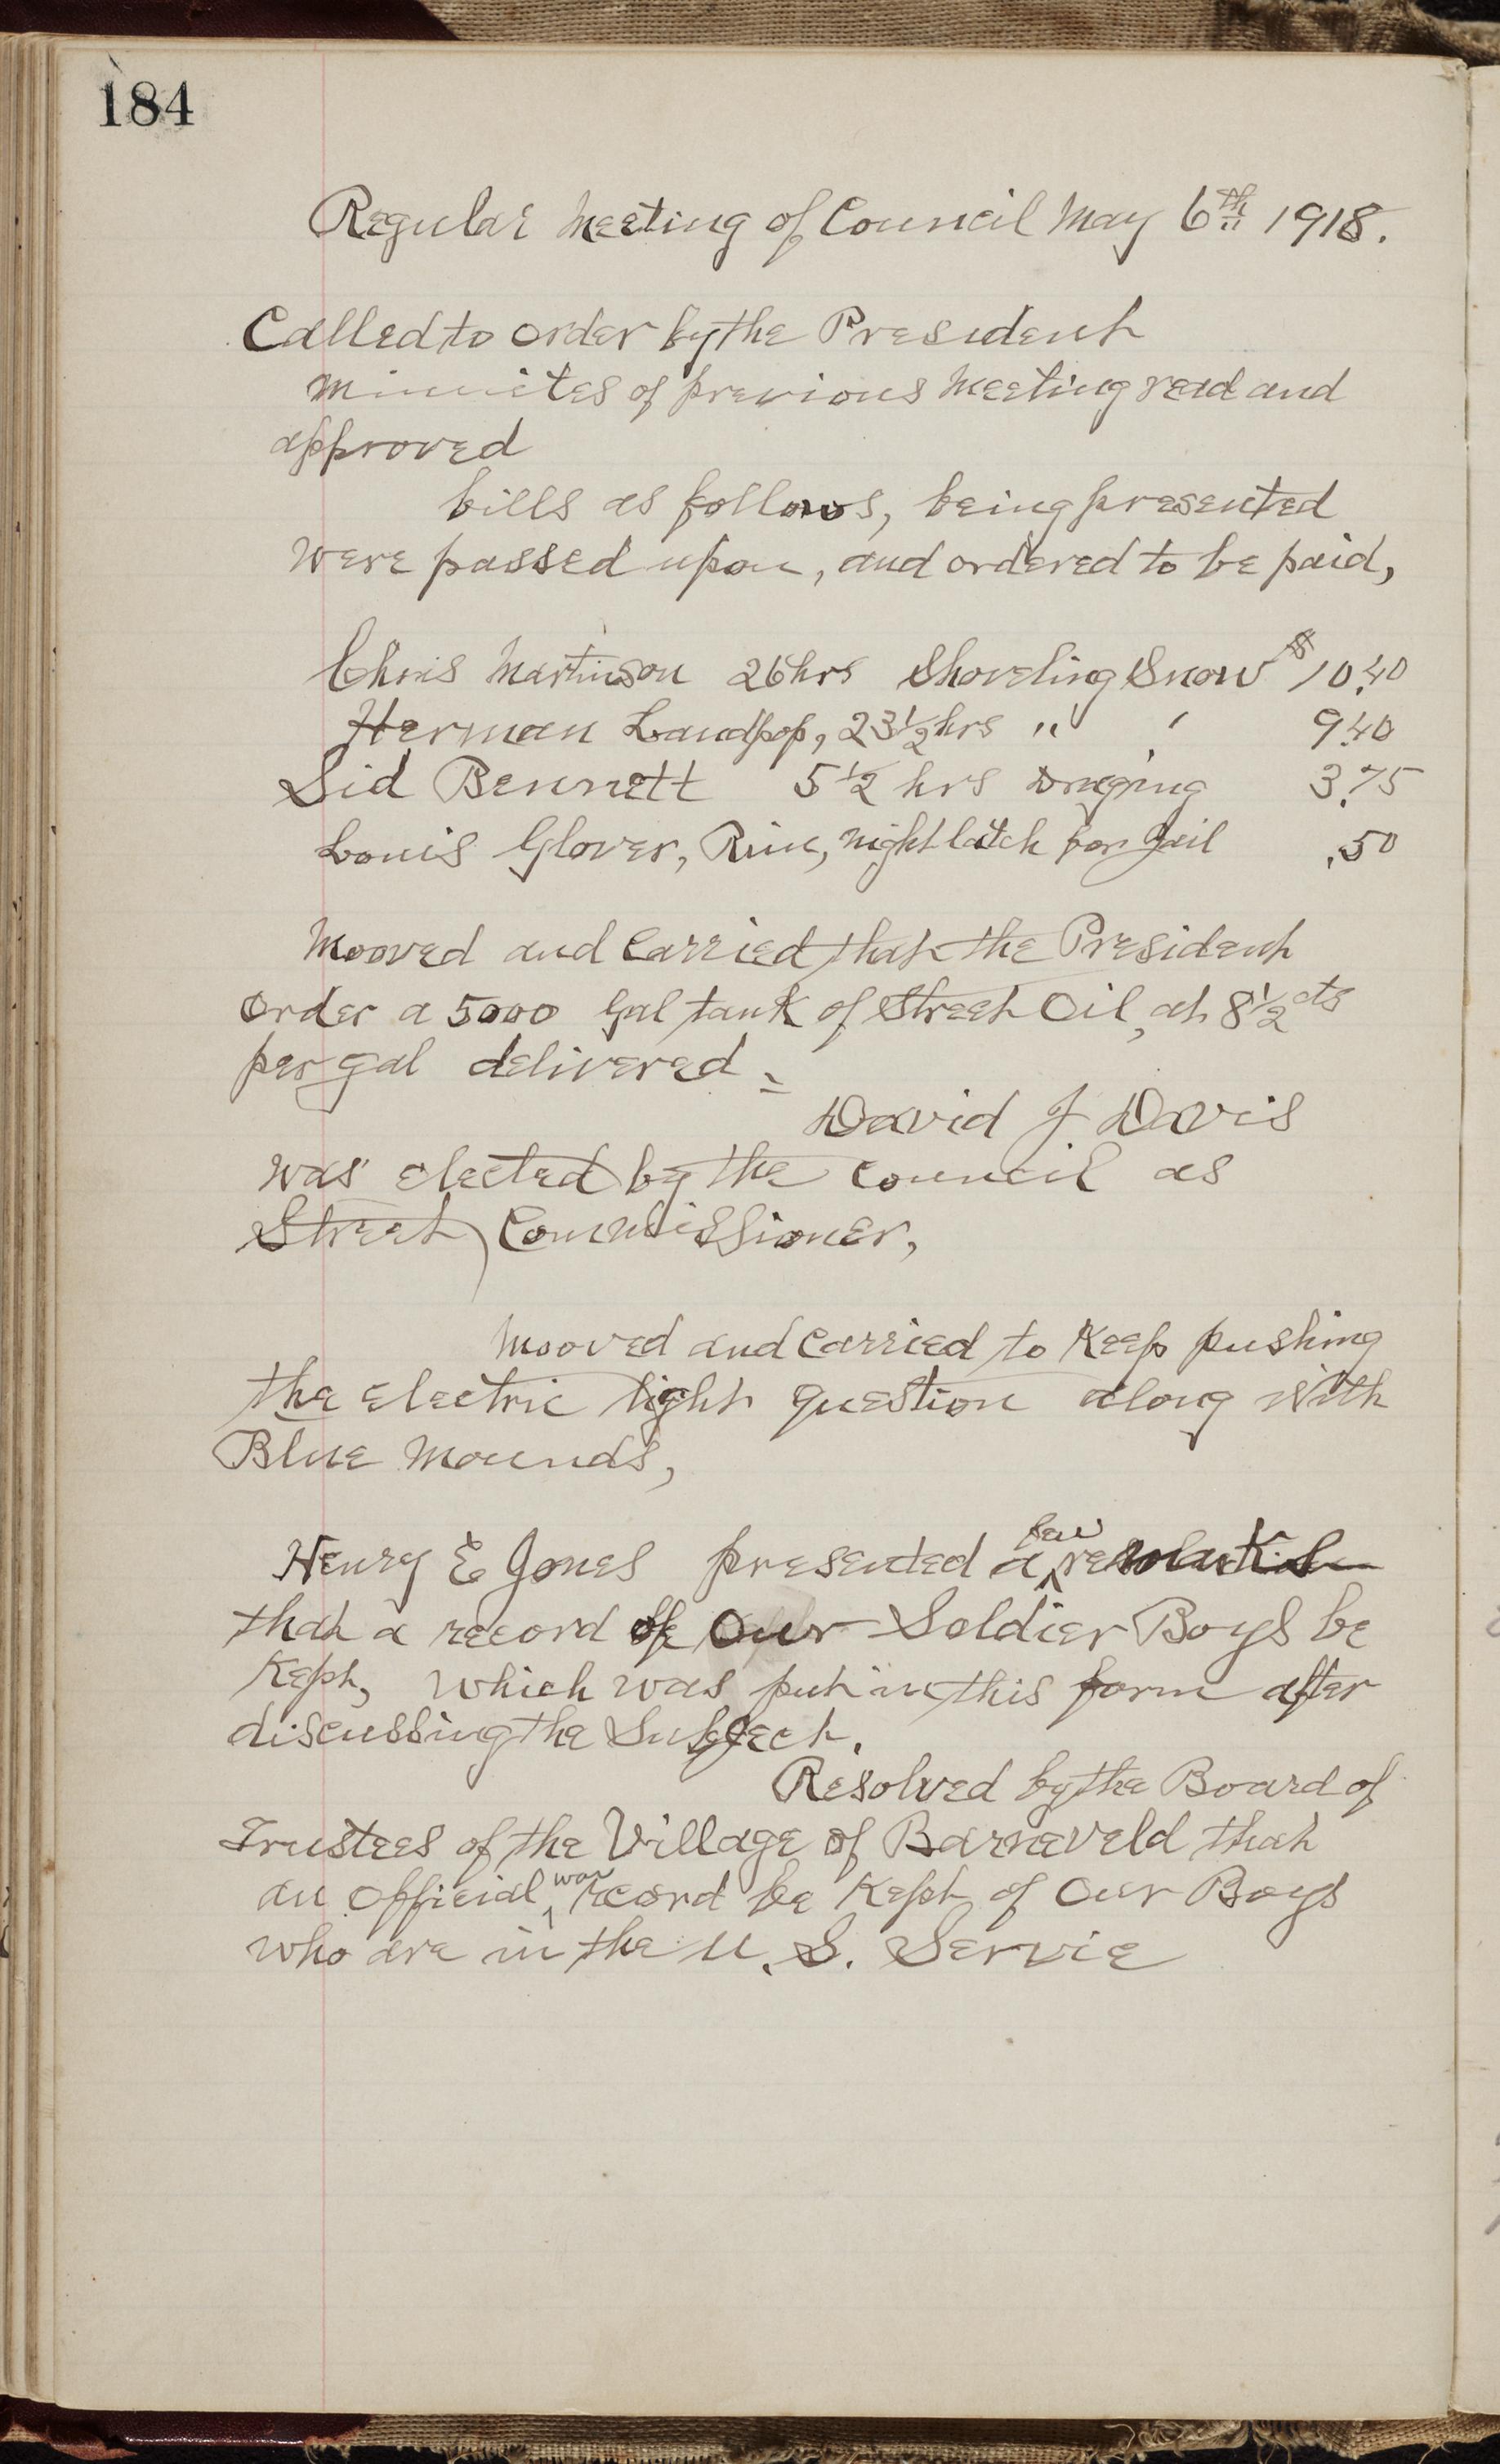 184
Regular Meeting of Council May 6th 1918.
Called to order by the President
Minuites of previous Meeting read and
approved
bills as follows, being presented
were passed upon, and ordered to be paid,
Chris Martinson 26 hrs Shoveling Snow $10.40
Herman Landpop, 23 1/2 hrs " " 9.40
Sid Bennett 5 1/2 hrs Draging 3.75
Louis Glover, Rim, night latch for Jail .50
Mooved and Carried that the President
order a 5000 Gal tank of Street Oil, at 8 1/2 cts
per gal delivered
David J Davis
was elected by the Council as
Street Commissioner,
Mooved and Carried to Keep pushing
the electric light question along with
Blue Mounds,
Henry E Jones presented a resolution
that a record of Our Soldier Boys be
Kept, which was put in this form after
discussing the Subject.
Resolved by the Board of
Trustees of the Village of Barneveld that
an official war record be Kept of Our Boys
who are in the U. S. Servie